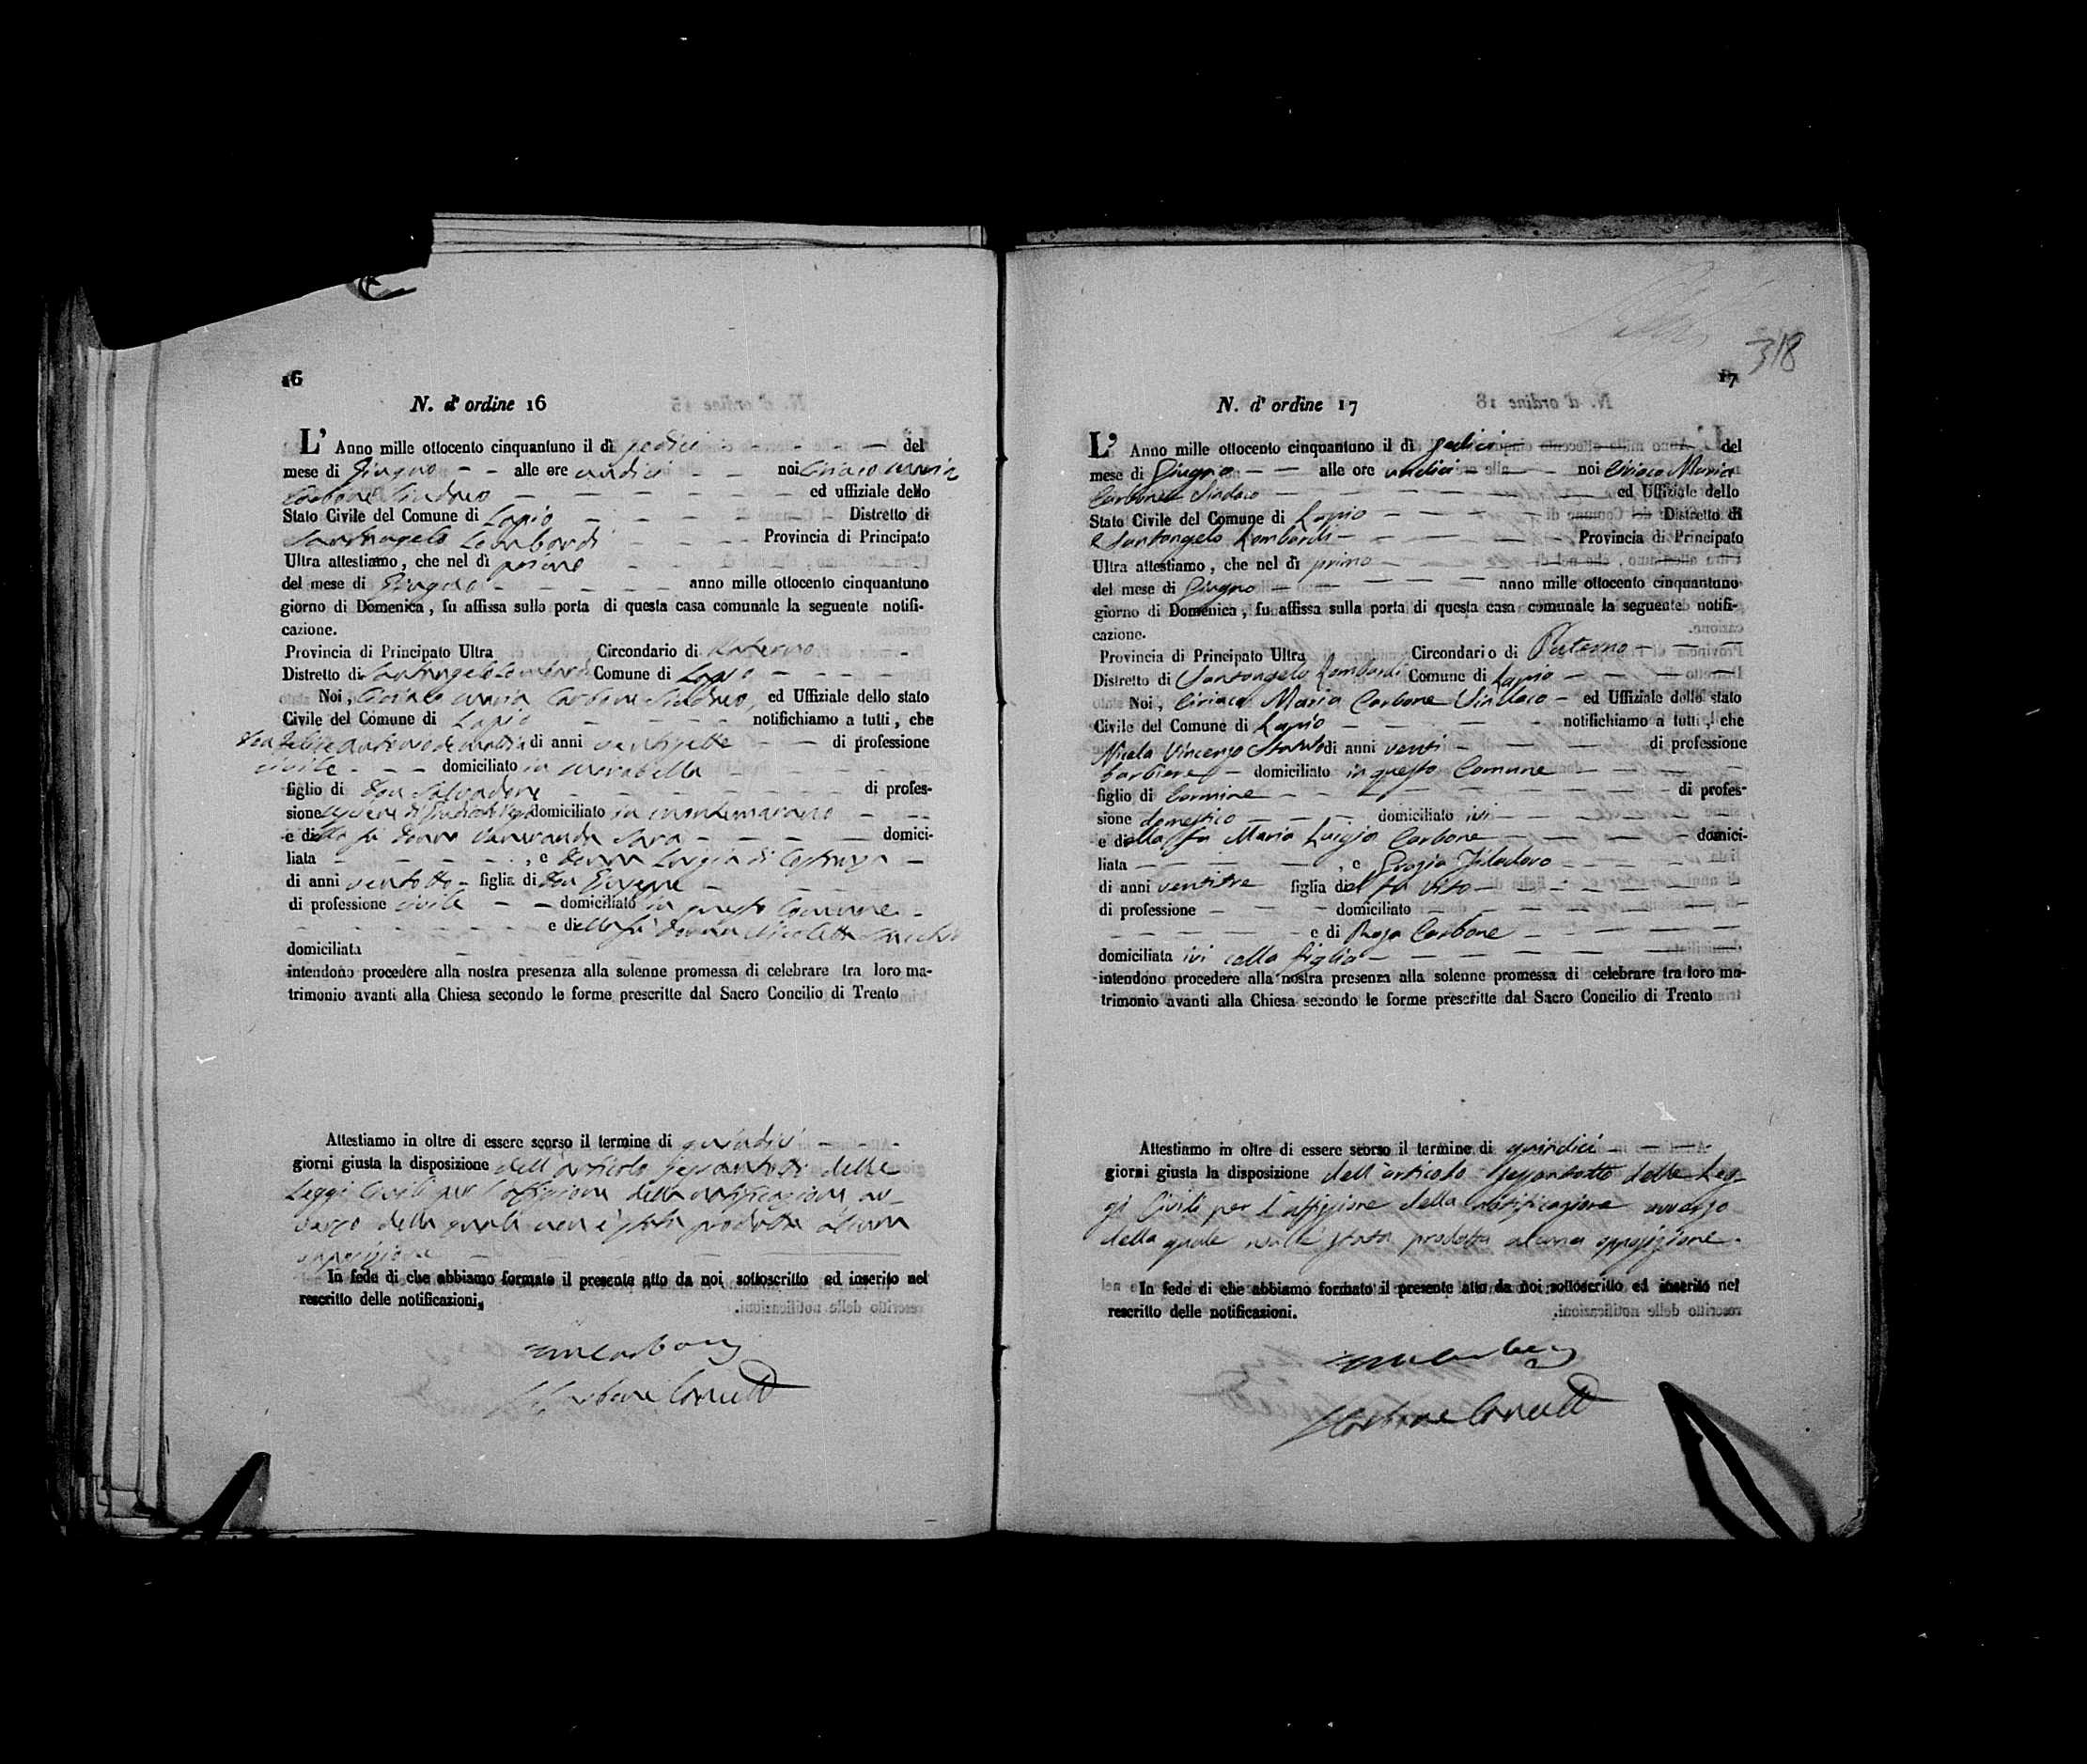 16
N. d' ordine 16
L' Anno mille ottocento cinquantuno il dì sedici — — — — del
mese di Giugno — — alle ore undici — — noi Ciriaco Maria
Carbone Sindaco — — — — — — — ed uffiziale dello
Stato Civile del Comune di Lapio — — — — — Distretto di
Santangelo Lombardi — — — — Provincia di Principato
Ultra attestiamo, che nel dì primo
del mese di Giugno — — — — — anno mille ottocento cinquantuno
giorno di Domenica, fu affissa sulla porta di questa casa comunale la seguente notifi-
cazione.
Provincia di Principato Ultra Circondario di Paterno —
Distretto di Santangelo Lombardi Comune di Lapio — — — —
Noi, Ciriaco Maria Carbone Sindaco, ed Uffiziale dello stato
Civile del Comune di Lapio — — — — notifichiamo a tutti, che
Don Felice Antonio de di anni ventisette — — di professione
civile — — — domiciliato in Mirabella
figlio di Don Salvadore — — — — — — di profes-
sione domiciliato in Montemarano — —
e della fu Donna Veneranda — — — — domici-
liata — — — — — , e Donna Luigia di —
di anni ventotto — figlia di Don Giuseppe —
di professione civile — — domiciliato in questo Comune —
— — — — — — e della fu Donna Nicoletta
domiciliata — — — — —
intendono procedere alla nostra presenza alla solenne promessa di celebrare tra loro ma-
trimonio avanti alla Chiesa secondo le forme prescritte dal Sacro Concilio di Trento
Attestiamo in oltre di essere scorso il termine di quindici — — —
giorni giusta la disposizione dell'articolo sessantotto delle
Leggi Civili per l'affissione della notificazione av-
verso della quale non è stata prodotta alcuna
opposizione — — — —
In fede di che abbiamo formato il presente atto da noi sottoscritto ed inserito nel
rescritto delle notificazioni.
Carbone
Carbone
318
17
N. d' ordine 17
L' Anno mille ottocento cinquantuno il dì sedici — — — — del
mese di Giugno — — alle ore undici — — — noi Ciriaco Maria
Carbone Sindaco — — — — — — — ed Uffiziale dello
Stato Civile del Comune di Lapio — — — — — Distretto di
Santangelo Lombardi — — — — — Provincia di Principato
Ultra attestiamo, che nel dì primo — — —
del mese di Giugno — — — — — anno mille ottocento cinquantuno
giorno di Domenica, fu affissa sulla porta di questa casa comunale la seguente notifi-
cazione.
Provincia di Principato Ultra Circondario di Paterno — — —
Distretto di Santangelo Lombardi Comune di Lapio — — — —
Noi, Ciriaco Maria Carbone Sindaco — ed Uffiziale dello stato
Civile del Comune di Lapio — — — — — notifichiamo a tutti, che
Nicola Vincenzo di anni venti — — — — di professione
barbiere — domiciliato in questo Comune — — — —
figlio di Carmine — — — — — — — di profes-
sione domestico — — — domiciliato ivi — — — —
e della fu Maria Luigia Carbone — — — — — domici-
liata — — — — — , e Grazia Filadoro — — — —
di anni ventitre figlia del fu Vito — — — — — —
di professione — — — — domiciliato — — — — — —
— — — — — — e di Rosa Carbone — — — — —
domiciliata ivi colla figlia — — — — — — —
intendono procedere alla nostra presenza alla solenne promessa di celebrare tra loro ma-
trimonio avanti alla Chiesa secondo le forme prescritte dal Sacro Concilio di Trento
Attestiamo in oltre di essere scorso il termine di quindici — — —
giorni giusta la disposizione dell'articolo sessantotto delle Leg-
gi Civili per l'affissione della notificazione avverso
della quale non è stata prodotta alcuna opposizione.
In fede di che abbiamo formato il presente atto da noi sottoscritto ed inserito nel
rescritto delle notificazioni.
Carbone
Carbone